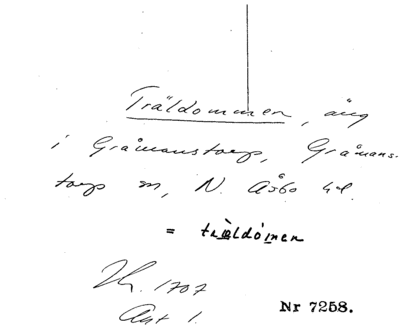 Träldommen, äng
i Gråmanstorp, Gråmans-
torp sn, N. Åsbo hd.
= trældómen
1707
Akt 1.
Nr 7258.